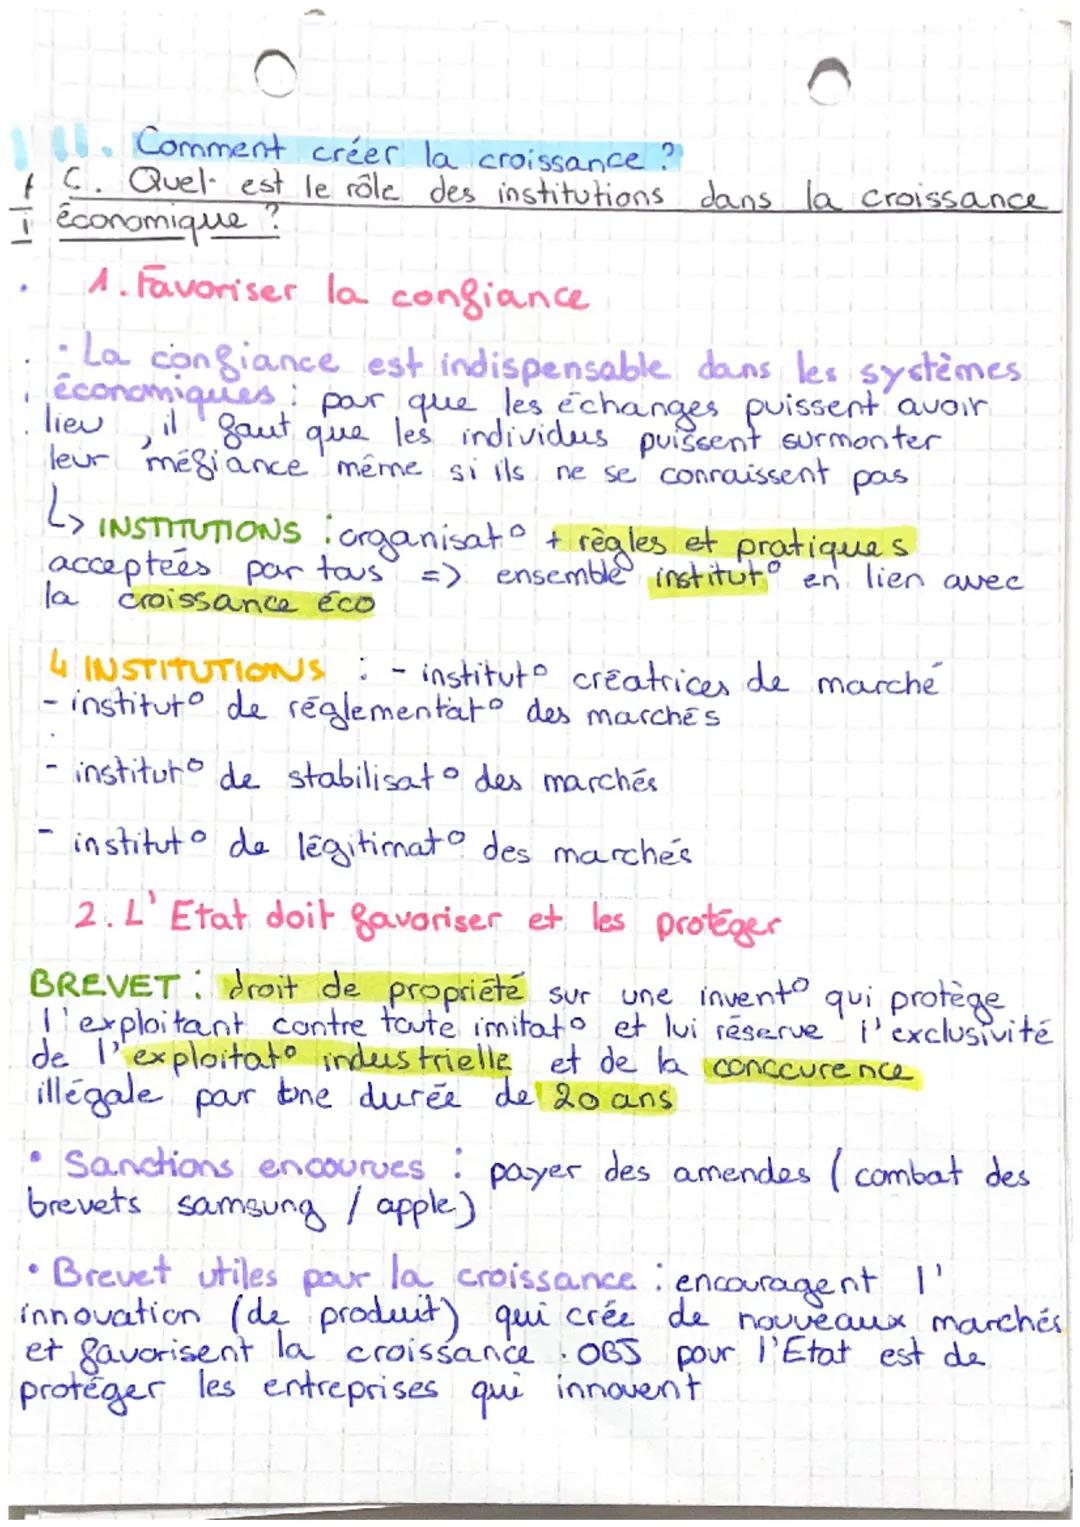 II. Comment créer la croissance ?
C. Quel est le rôle des institutions dans la croissance
économique ?
1. Favoriser la confiance
• La confiance est indispensable dans les systèmes
économiques : pour que les échanges puissent avoir
lieu, il faut que les individus puissent surmonter
leur méfiance même si ils ne se connaissent pas
↳ INSTITUTIONS : organisat° + règles et pratiques
acceptées par tous => ensemble institut° en lien avec
la croissance éco
4 INSTITUTIONS : - institut° créatrices de marché
- institut° de réglementat° des marchés
- institut° de stabilisat° des marchés
- institut° de légitimat° des marchés
2. L'Etat doit favoriser et les protéger
BREVET : droit de propriété sur une invent° qui protège
l'exploitant contre toute imitat° et lui réserve l'exclusivité
de l'exploitat° industrielle et de la conccurence
illégale par une durée de 20 ans
• Sanctions encourues : payer des amendes (combat des
brevets samsung / apple)
• Brevet utiles pour la croissance : encouragent l'
innovation (de produit) qui crée de nouveaux marchés
et favorisent la croissance. OBJ pour l'Etat est de
protéger les entreprises qui innovent